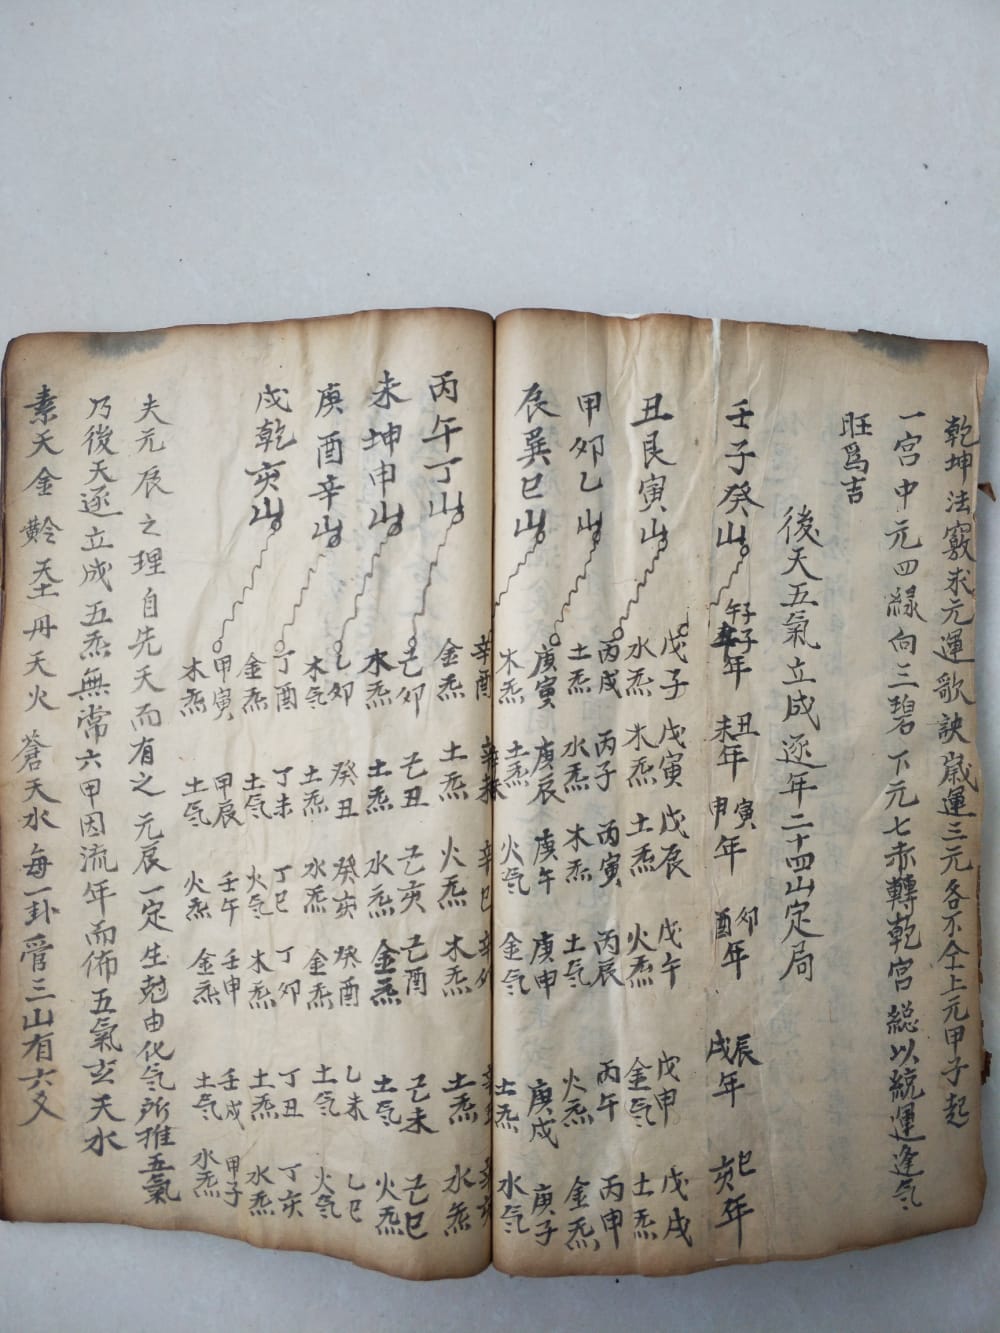 乾坤法竅求元運歌訣嵗運三元各不仝上元甲子起
一宮中元四緑向三碧下元七赤轉乾宮総以統運逢气
旺爲吉
後天五氣立成逐年二十四山定局
壬子癸山 午子年 丑未年 寅申年 卯酉年 辰戌年 巳亥年
丑艮寅山 戊子水炁 戊寅木炁 戊辰土炁 戊午火炁 戊申金气 戊戌土炁
甲卯乙山 丙戌土炁 丙子水炁 丙寅木炁 丙辰土气 丙午火炁 丙申金炁
辰巽巳山 庚寅木炁 庚辰土炁 庚午火气 庚申金气 庚戌土炁 庚子水气
丙午丁山 辛酉金炁 辛未土炁 辛巳火炁 辛卯木炁 辛丑土炁 辛亥水炁
未坤申山 己卯木炁 己丑土炁 己亥水炁 己酉金炁 己未土气 己巳火炁
庚酉辛山 乙卯木气 癸丑土炁 癸亥水炁 癸酉金炁 乙未土气 乙巳火气
戌乾亥山 丁酉金炁 丁未土气 丁巳火气 丁卯木炁 丁丑土炁 丁亥水炁
甲寅木炁 甲辰土气 壬午火炁 壬申金炁 壬戌土气 甲子水炁
夫元辰之理自先天而有之元辰一定生尅由化气所推五氣
乃後天逐立成五炁無常六甲因流年而佈五氣玄天水
素天金黅天土丹天火蒼天水每一卦管三山有六爻